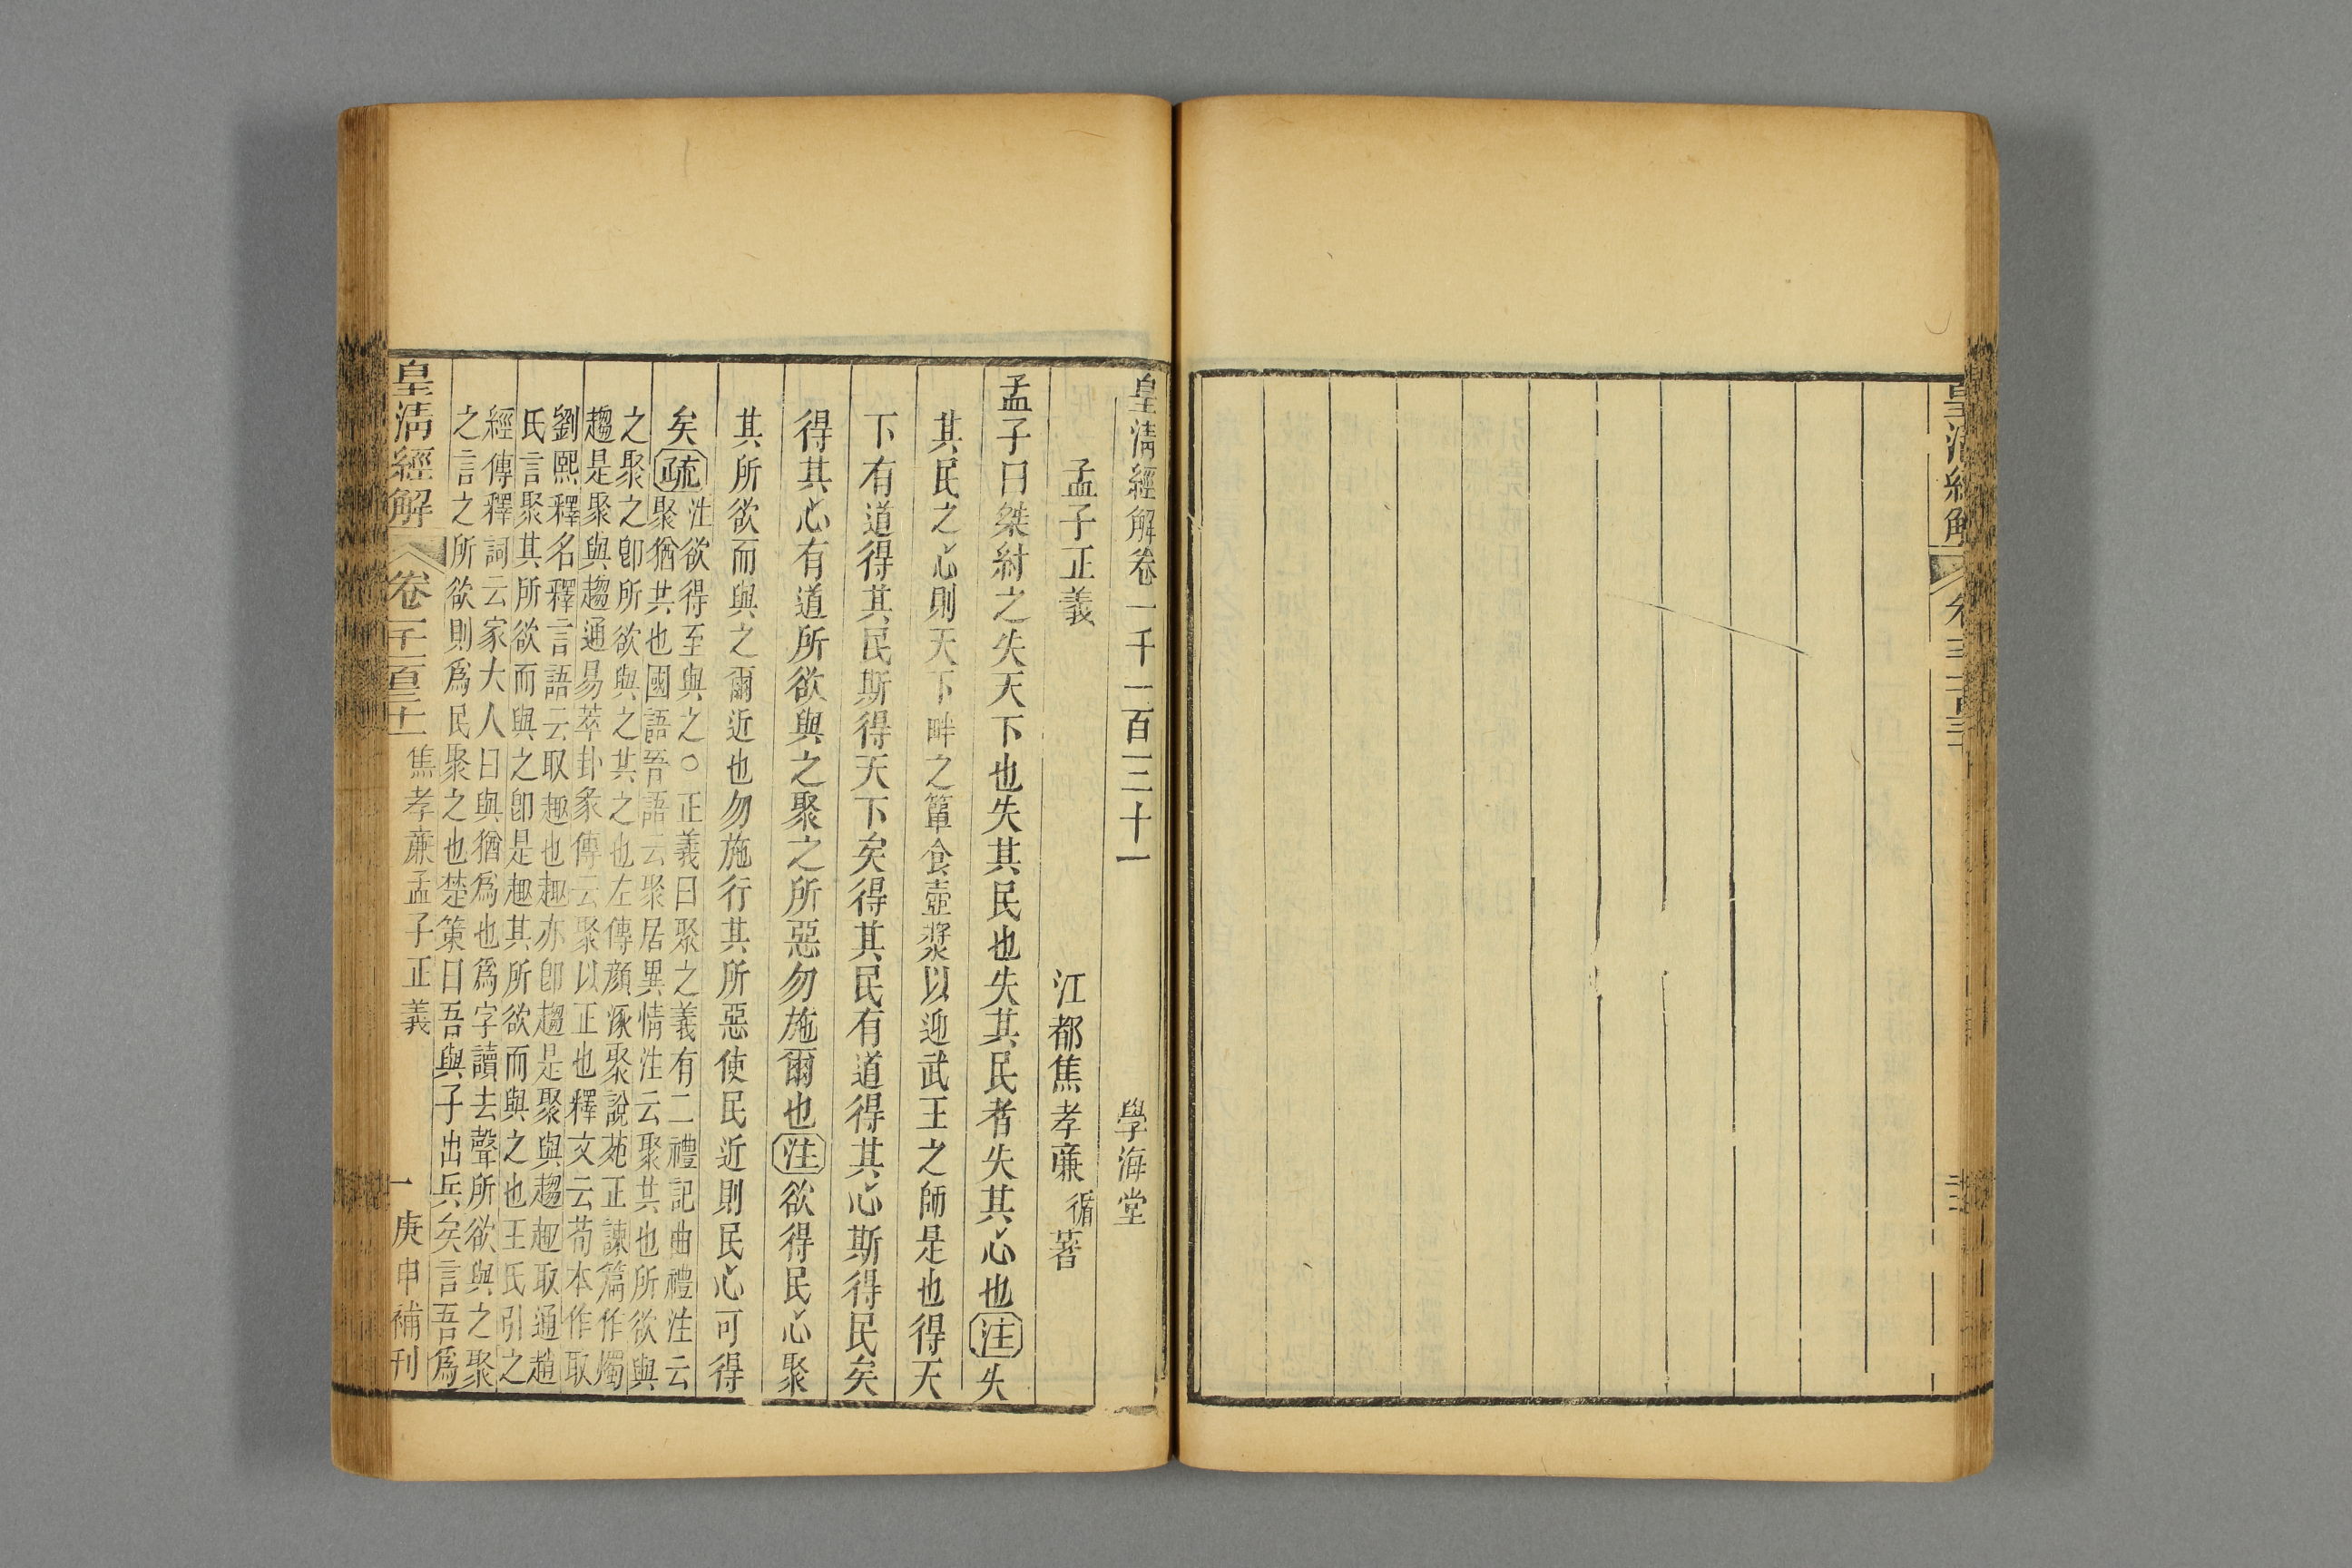 皇清經解卷一千一百三十一
學海堂
孟子正義
江都焦孝廉循著
孟子曰桀紂之失天下也失其民也失其民者失其心也注失
其民之心則天下畔之簞食壺漿以迎武王之師是也得天
下有道得其民斯得天下矣得其民有道得其心斯得民矣
得其心有道所欲與之聚之所惡勿施爾也注欲得民心聚
其所欲而與之爾近也勿施行其所惡使民近則民心可得
矣疏注欲得至與之○正義曰聚之義有二禮記曲禮注云
聚猶共也國語晉語云聚居異情注云聚共也所欲與
之聚之卽所欲與之共之也左傳顏涿聚說苑正諫篇作燭
趨是聚與趨通易萃卦彖傳云聚以正也釋文云荀本作取
劉熙釋名釋言語云取趣也趣亦卽趨是聚與趨趣取通趙
氏言聚其所欲而與之卽是趣其所欲而與之也王氏引之
經傳釋詞云家大人曰與猶爲也爲字讀去聲所欲與之聚
之言之所欲則爲民聚之也楚策曰吾與子出兵矣言吾爲
皇清經解
卷一千一百三十一
焦孝廉孟子正義
一
庚申補刊